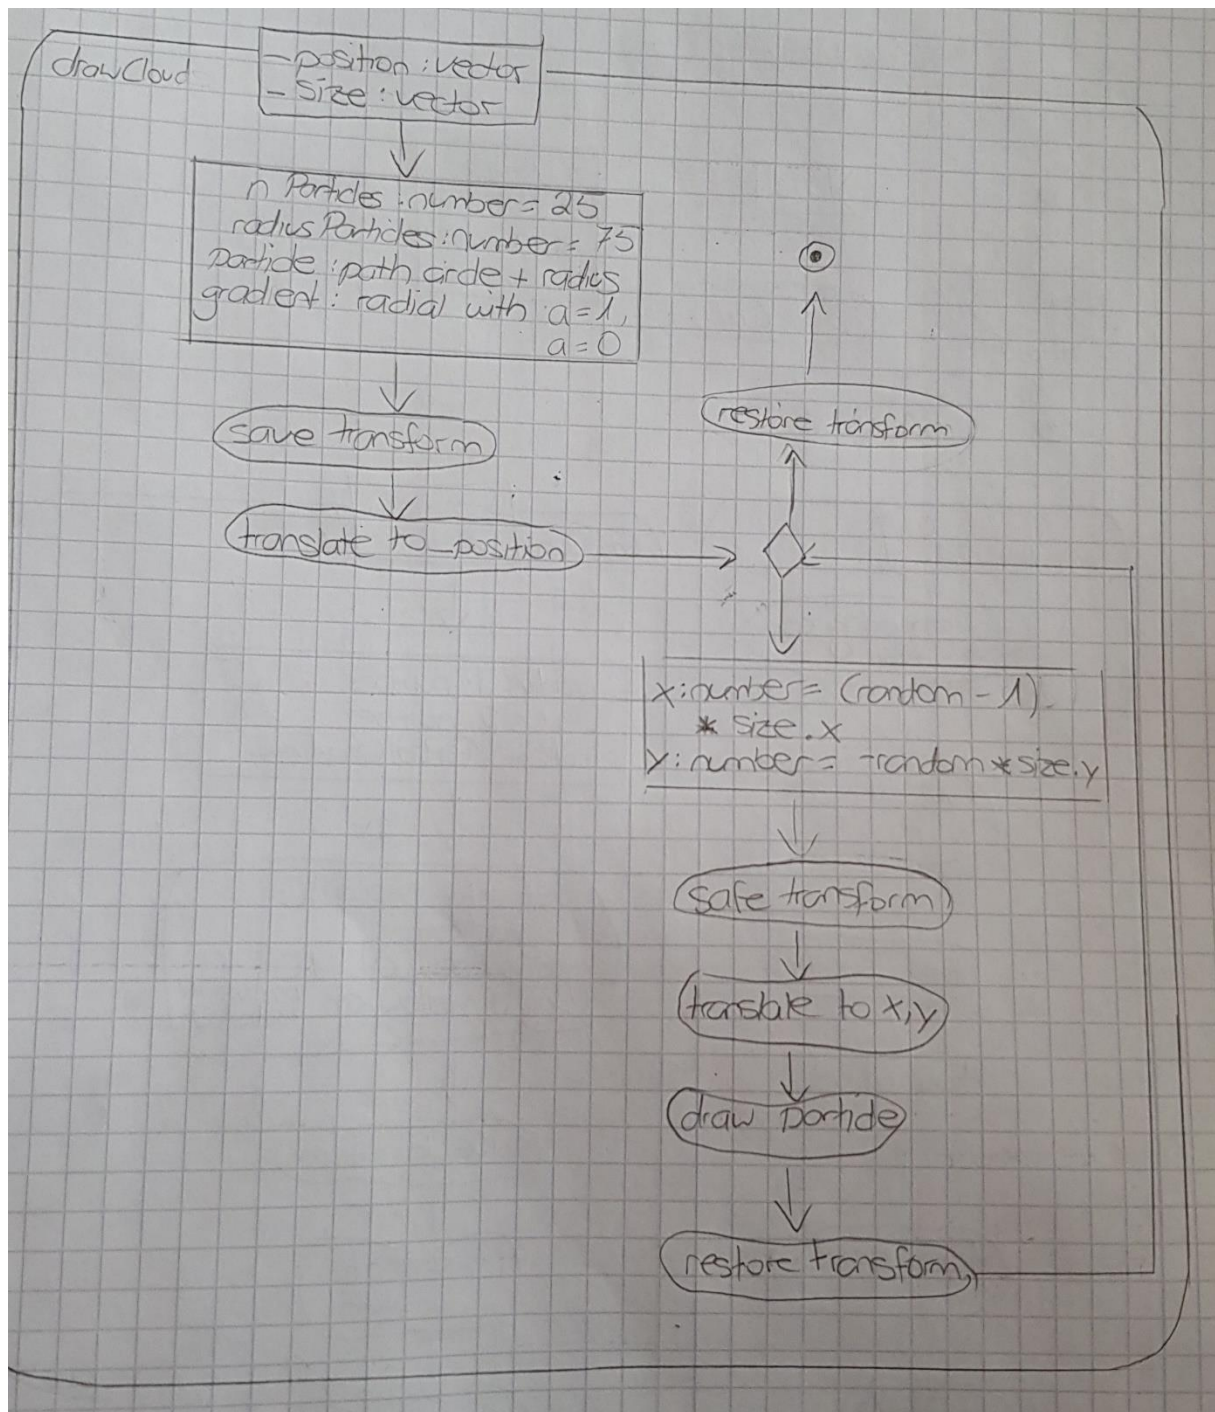 drawCloud
- position : vector
- size : vector
n Particles : number = 25
radius Particles : number = 75
particle : path circle + radius
gradient : radial with a=1,
a=0
save transform
translate to _position
restore transform
x : number = (random - 1)
* size.x
y : number = -random * size.y
safe transform
translate to x,y
draw particle
restore transform